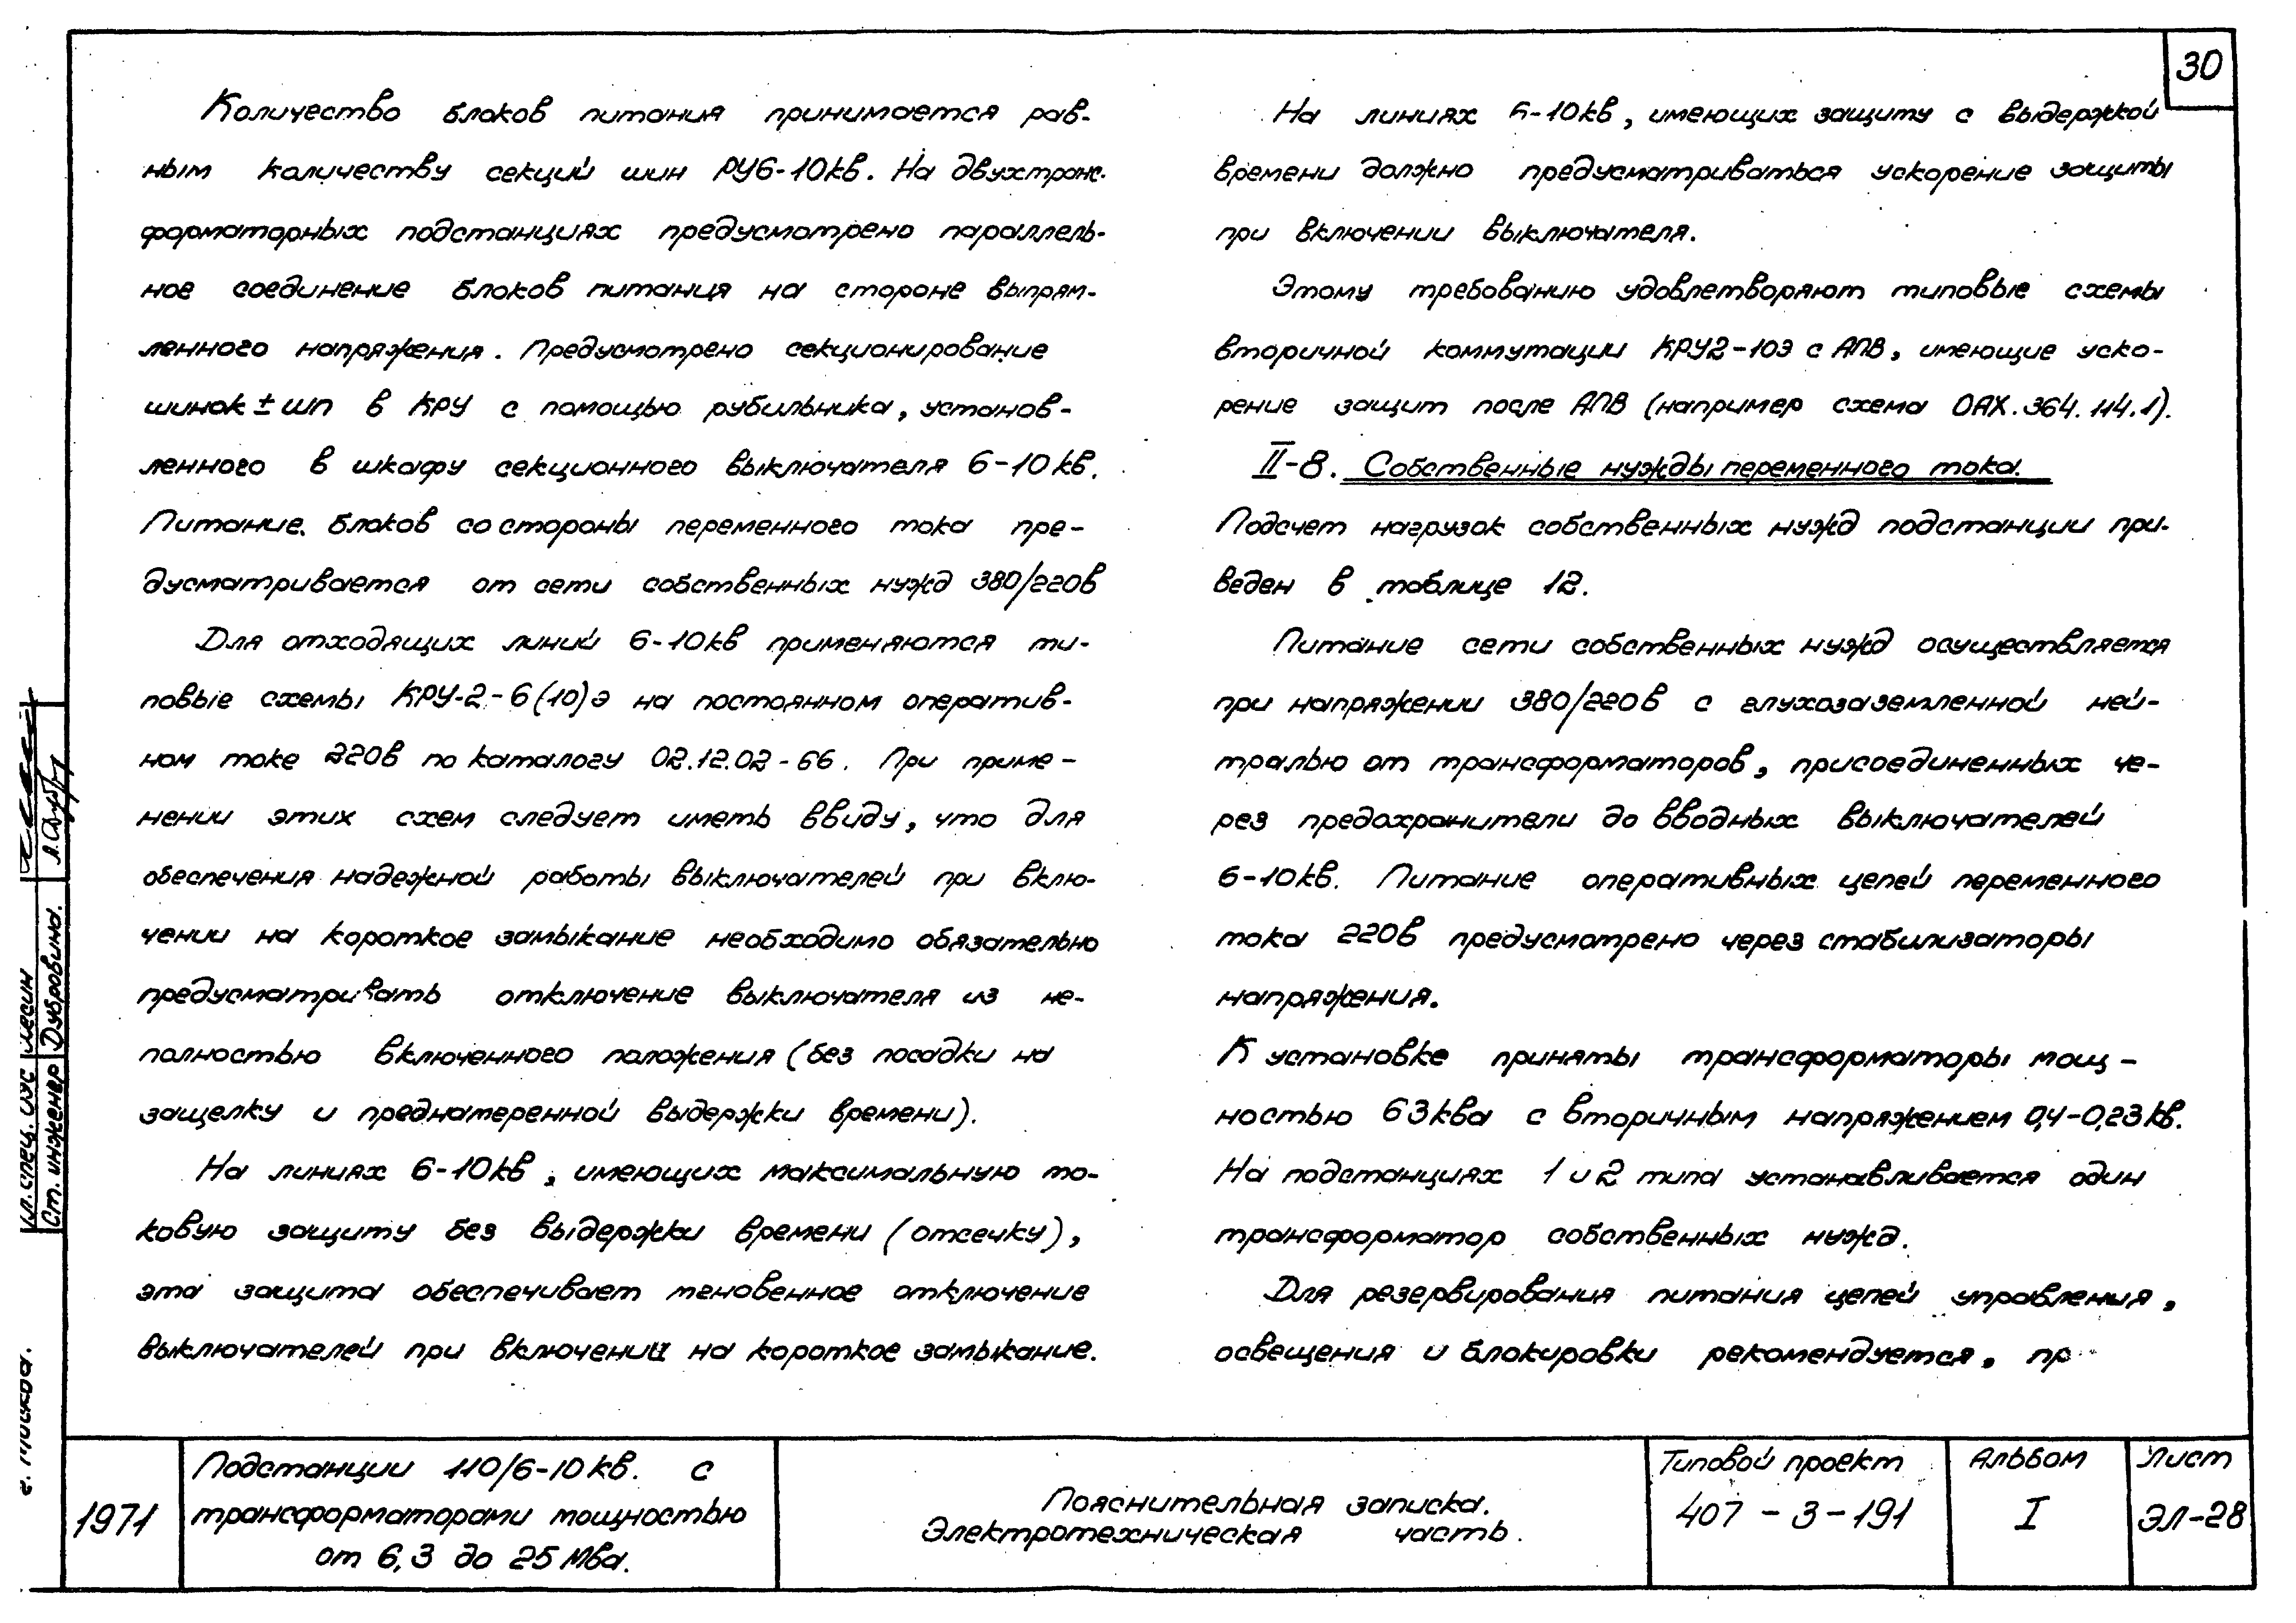 30
Количество блоков питания принимается рав-
ным количеству секций шин РУ6-10кв. На двухтранс-
форматорных подстанциях предусмотрено параллель-
ное соединение блоков питания на стороне выпрям-
ленного напряжения. Предусмотрено секционирование
шинок ± шп в КРУ с помощью рубильника, установ-
ленного в шкафу секционного выключателя 6-10кв.
Питание блоков со стороны переменного тока пре-
дусматривается от сети собственных нужд 380/220в
Для отходящих линий 6-10кв применяются ти-
повые схемы КРУ-2-6(10)э на постоянном оператив-
ном токе 220в по каталогу 02.12.02-66. При приме-
нении этих схем следует иметь ввиду, что для
обеспечения надежной работы выключателей при вклю-
чении на короткое замыкание необходимо обязательно
предусматривать отключение выключателя из не-
полностью включенного положения (без посадки на
защелку и преднамеренной выдержки времени).
На линиях 6-10кв, имеющих максимальную то-
ковую защиту без выдержки времени (отсечку),
эта защита обеспечивает мгновенное отключение
выключателей при включении на короткое замыкание.
На линиях 6-10кв, имеющих защиту с выдержкой
времени должно предусматриваться ускорение защиты
при включении выключателя.
Этому требованию удовлетворяют типовые схемы
вторичной коммутации КРУ2-10Э с АПВ, имеющие уско-
рение защит после АПВ (например схема ОАХ.364.114.1).
II-8. Собственные нужды переменного тока.
Подсчет нагрузок собственных нужд подстанции при-
веден в таблице 12.
Питание сети собственных нужд осуществляется
при напряжении 380/220в с глухозаземленной ней-
тралью от трансформаторов, присоединенных че-
рез предохранители до вводных выключателей
6-10кв. Питание оперативных цепей переменного
тока 220в предусмотрено через стабилизаторы
напряжения.
К установке приняты трансформаторы мощ-
ностью 63ква с вторичным напряжением 0,4-0,23кв.
На подстанциях 1 и 2 типа устанавливается один
трансформатор собственных нужд.
Для резервирования питания цепей управления,
освещения и блокировки рекомендуется, пр
Гл. спец. ОУС Месин
Ст. инженер Дубровина.
г. Москва.
1971
Подстанции 110/6-10кв. с
трансформаторами мощностью
от 6,3 до 25 Мва.
Пояснительная записка.
Электротехническая часть.
Типовой проект
407-3-191
Альбом
I
Лист
ЭЛ-28